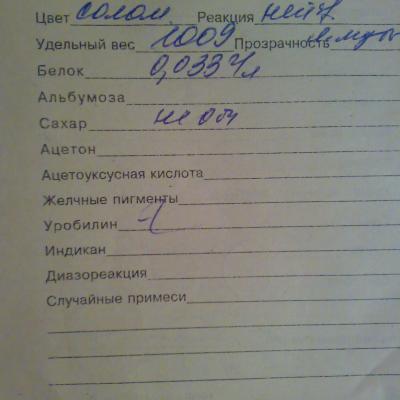 Цвет солом Реакция нейтр.
Удельный вес 1009 Прозрачность
Белок 0,033 ч/л
Альбумоза
Сахар не обн
Ацетон
Ацетоуксусная кислота
Желчные пигменты
Уробилин
Индикан
Диазореакция
Случайные примеси